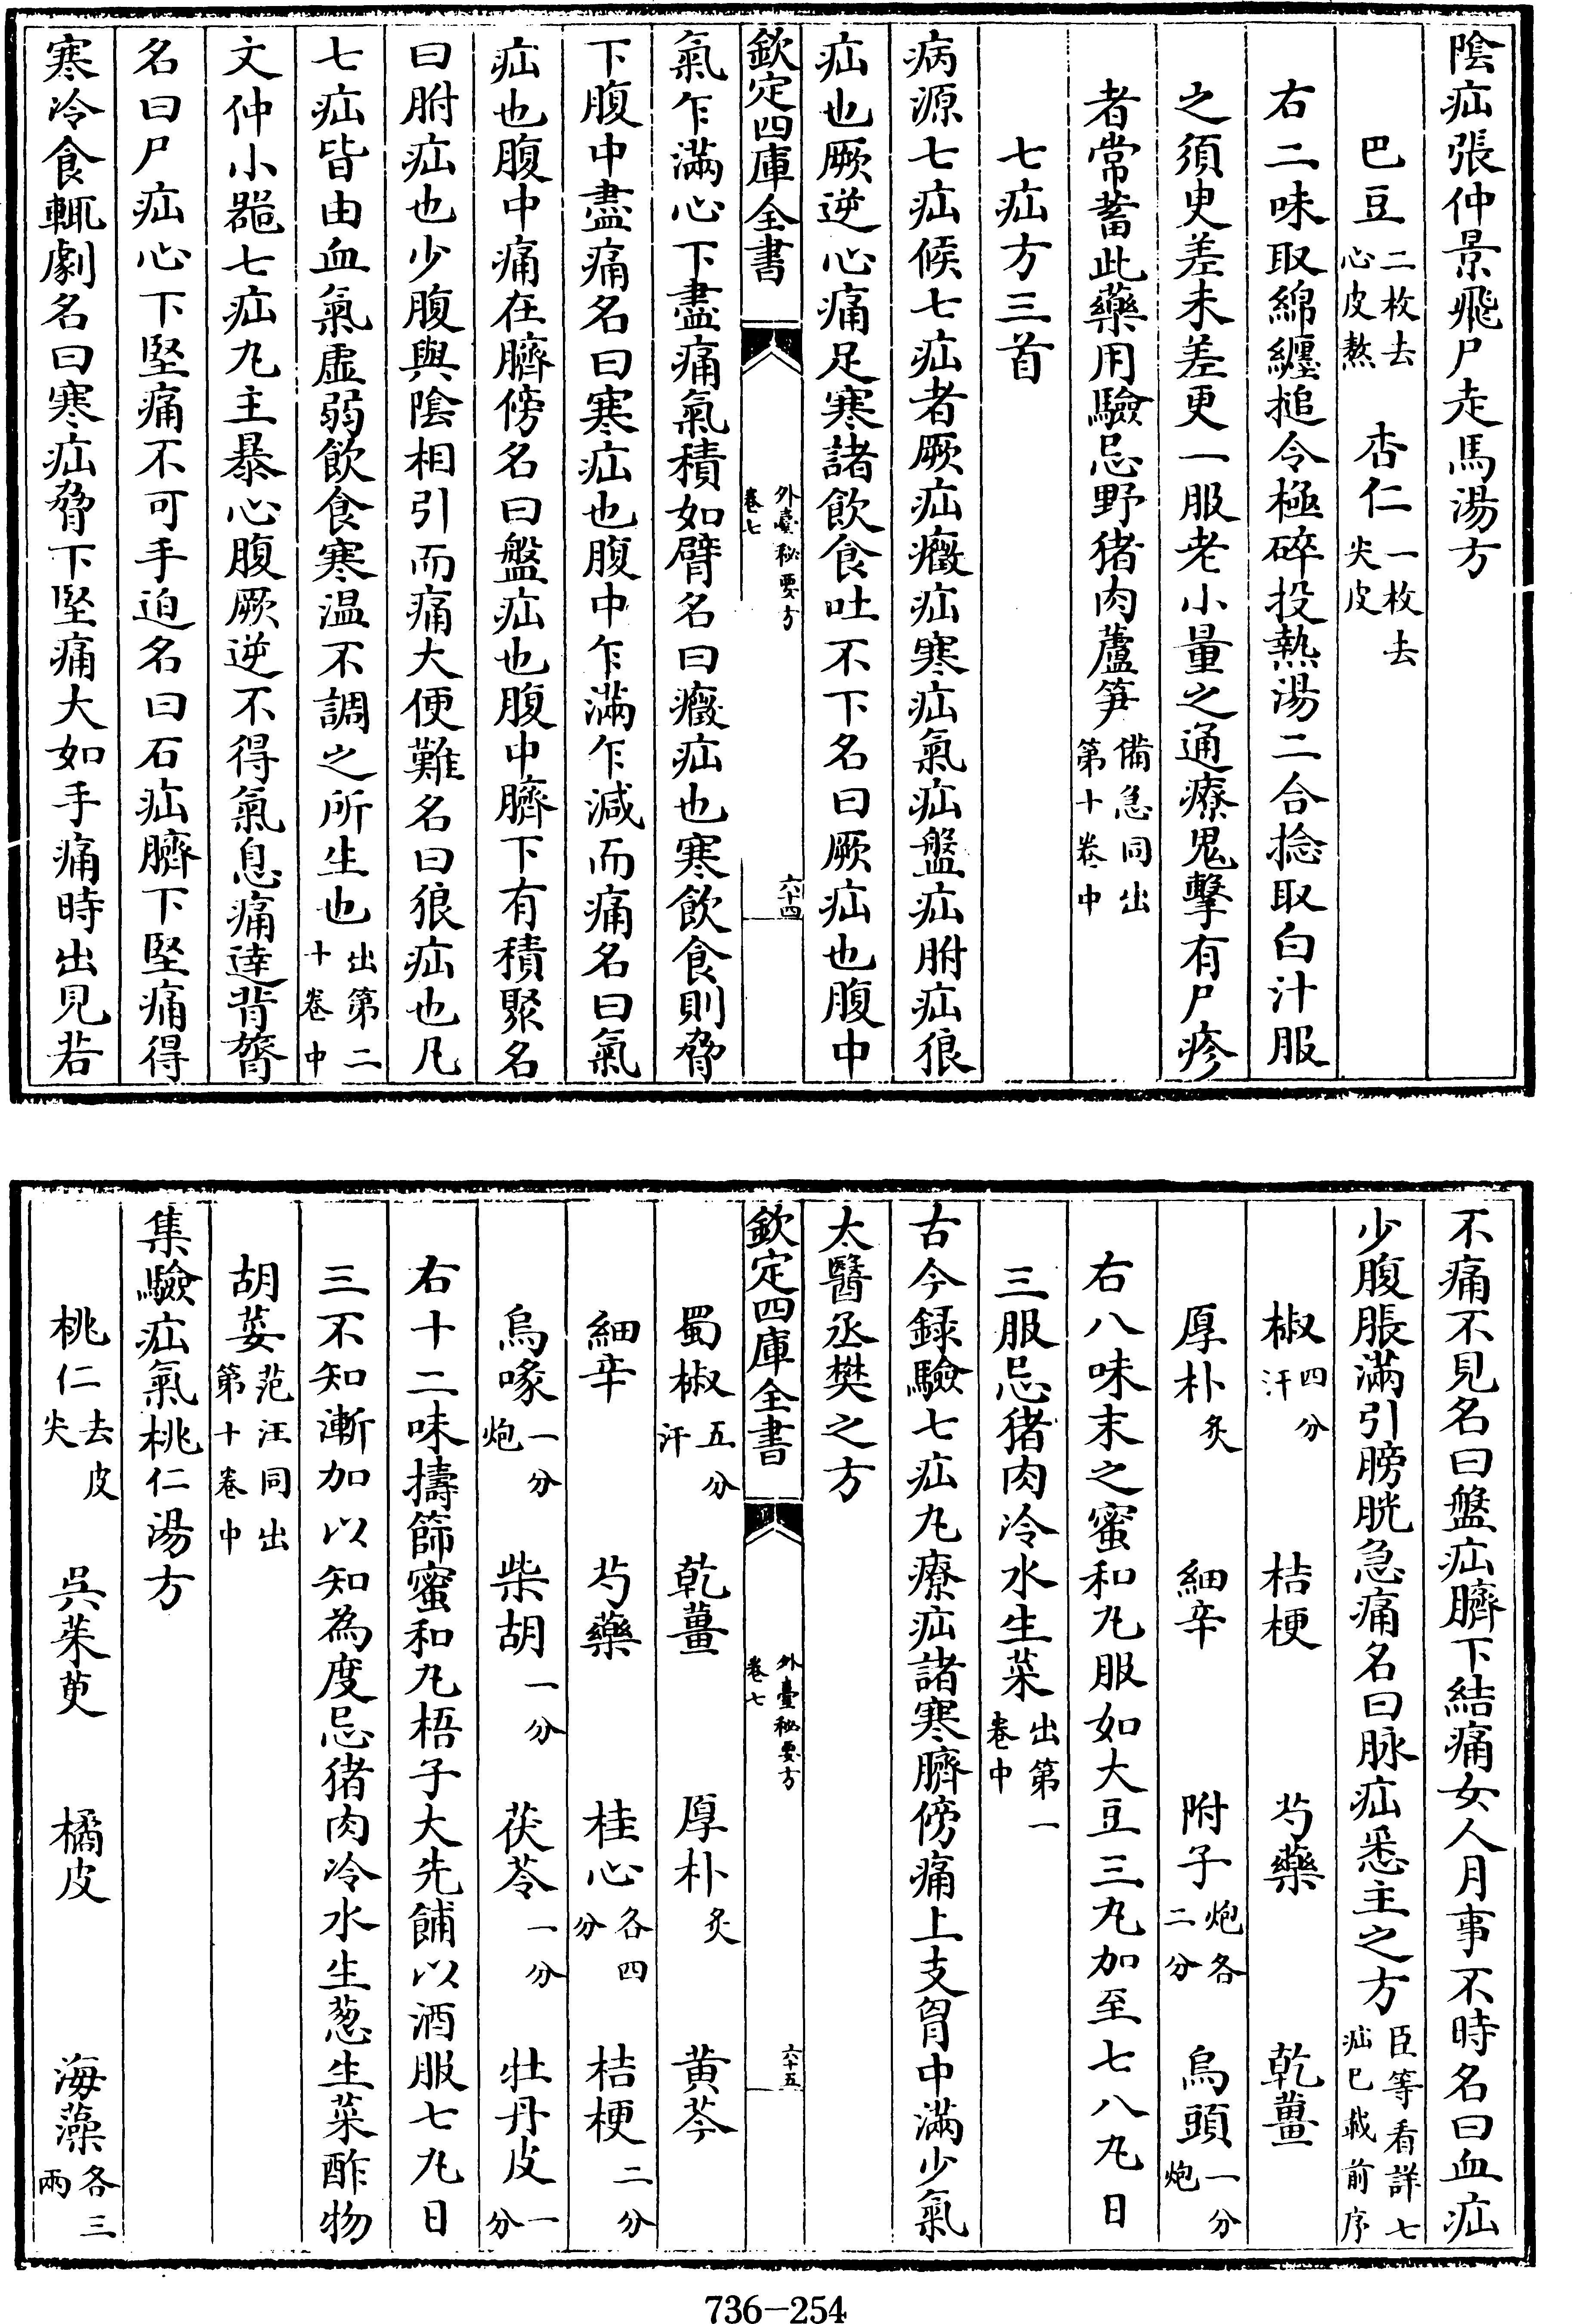 陰疝張仲景飛尸走馬湯方
巴豆二枚去心皮熬　杏仁一枚去尖皮
右二味取綿纏搥令極碎投熱湯二合捻取白汁服
之須臾差未差更一服老小量之通療鬼擊有尸疹
者常蓄此藥用驗忌野猪肉蘆笋備急同出第十卷中
七疝方三首
病源七疝候七疝者厥疝癥疝寒疝氣疝盤疝胕疝狼
疝也厥逆心痛足寒諸飲食吐不下名曰厥疝也腹中
欽定四庫全書　外臺秘要方卷七　六十四
氣乍滿心下盡痛氣積如臂名曰癥疝也寒飲食則脅
下腹中盡痛名曰寒疝也腹中乍滿乍減而痛名曰氣
疝也腹中痛在臍傍名曰盤疝也腹中臍下有積聚名
曰胕疝也少腹與陰相引而痛大便難名曰狼疝也凡
七疝皆由血氣虛弱飲食寒温不調之所生也出第二十卷中
文仲小器七疝丸主暴心腹厥逆不得氣息痛達背膂
名曰尸疝心下堅痛不可手迫名曰石疝臍下堅痛得
寒冷食輒劇名曰寒疝脅下堅痛大如手痛時出見若
不痛不見名曰盤疝臍下結痛女人月事不時名曰血疝
少腹脹滿引膀胱急痛名曰脉疝悉主之方臣等看詳七疝已載前序
椒四分汗　桔梗　芍藥　乾薑
厚朴炙　細辛　附子炮各二分　烏頭一分炮
右八味末之蜜和丸服如大豆三丸加至七八丸日
三服忌猪肉冷水生菜出第一卷中
古今録驗七疝丸療疝諸寒臍傍痛上支胷中滿少氣
太醫丞樊之方
欽定四庫全書　外臺秘要方卷七　六十五
蜀椒五分汗　乾薑　厚朴炙　黄芩
細辛　芍藥　桂心各四分　桔梗二分
烏喙一分炮　柴胡一分　茯苓一分　牡丹皮一分
右十二味擣篩蜜和丸梧子大先餔以酒服七丸日
三不知漸加以知為度忌猪肉冷水生葱生菜酢物
胡荽范汪同出第十卷中
集驗疝氣桃仁湯方
桃仁去皮尖　吳茱萸　橘皮　海藻各三兩
736-254